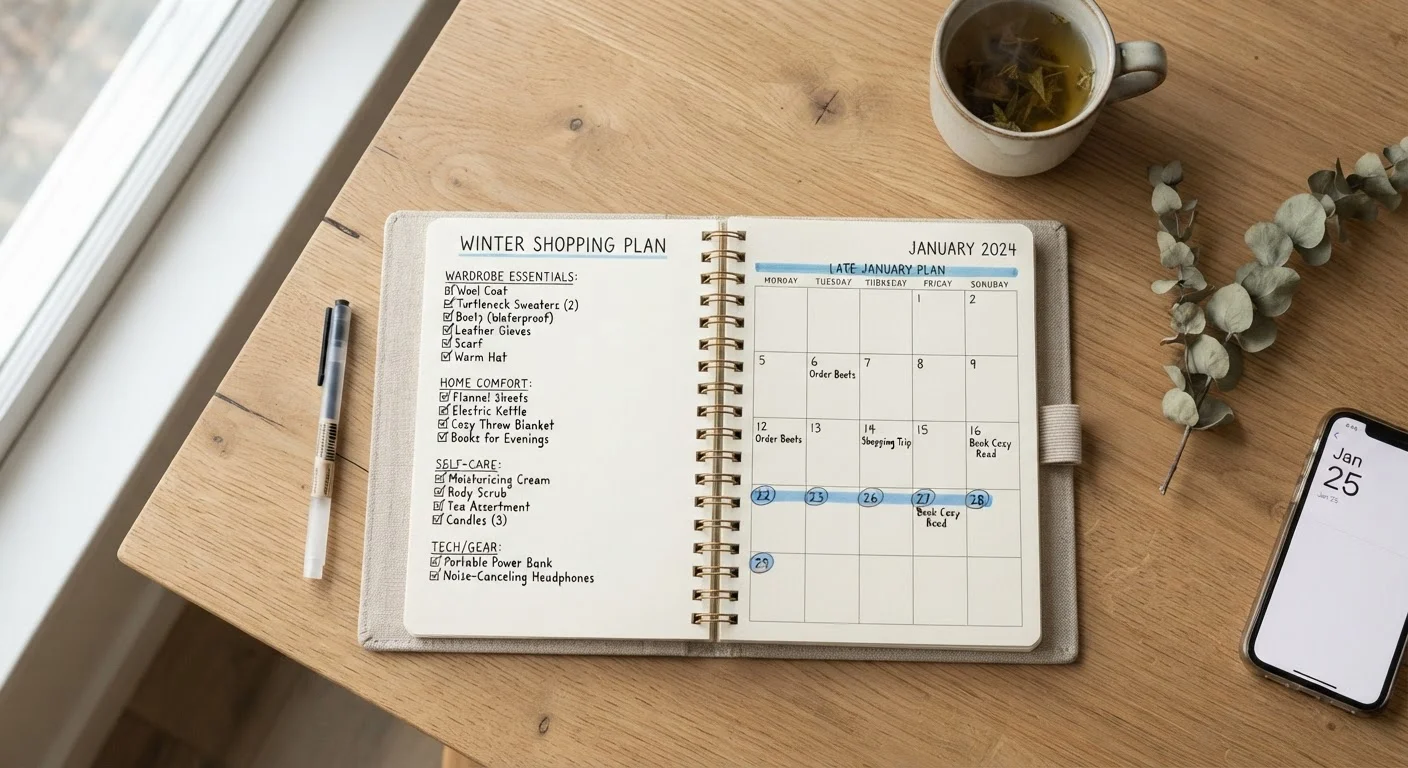 WINTER SHOPPING PLAN
WARDROBE ESSENTIALS:
Wool Coat
Turtleneck Sweaters (2)
Leather Gleves
Scarf
Warm Hat
HOME COMFORT:
Flannel Sheefs
Electric Kettle
Cezy Threw Blanket
Bookt for Evenings
SELF-CARE:
Meisturicing Cream
Rody Scrub
Tea Assertment
Candles (3)
TECH/GEAR:
Portable Power Bank
Noise-Canceling Headphones
JANUARY 2024
LATE JANUARY PLAN
MORDAY TUESDAY FRICAY SONUBAY
1 2
5 6 7 8 9
Order Beets
12 13 14 15 16
Order Beets Shepping Trip Beek Cezy
Read
22 23 26 27 28
Beek Cezy
Reed
29
Jan
25
Jan 25